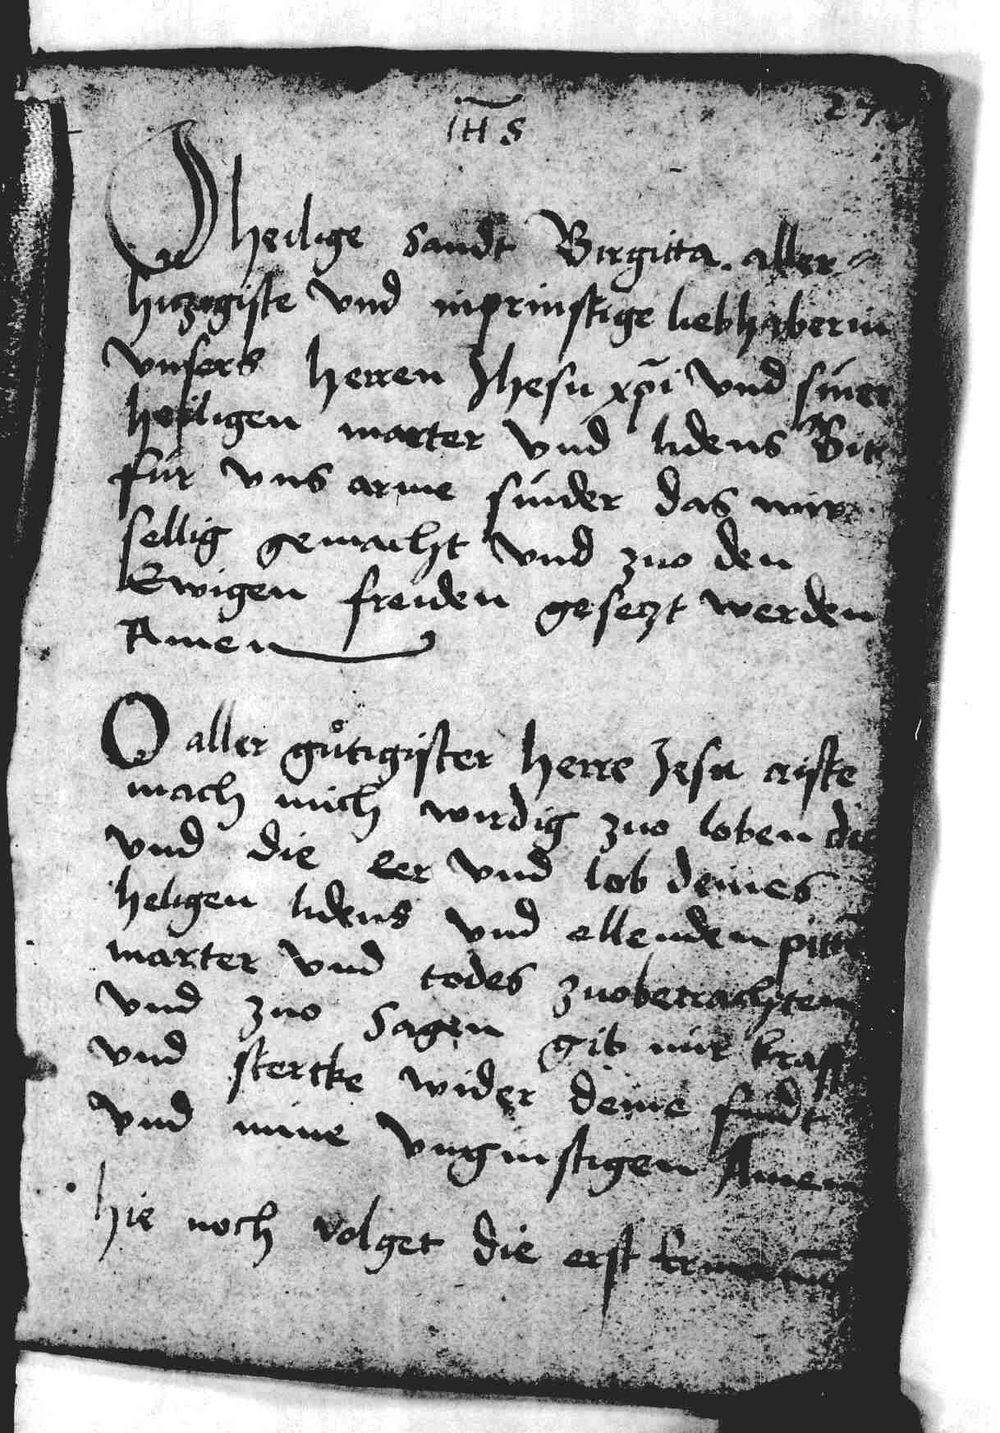 IHS
O heilige Sandt Birgitta. aller-
hitzigiste vnd inprinstige liebhaberin
vnsers herren Jhesu xp̄i vnd siner
heiligen marter vnd lidens Bitt
für vns arme sünder das wir
sellig gemacht vnd zuo den
Ewigen freiden gesetzt werden
Amen
O aller guͦtigister herre Jesu criste
mach mich wirdig zuo loben dich
vnd die eer vnd lob deines
heligen lidens vnd ellenden pittn̄
marter vnd todes zuobetrachten
vnd zuo sagen gib mir krafft
vnd stercke wider deine findt
vnd mine vngünstigen Amen
hie noch volget die erst